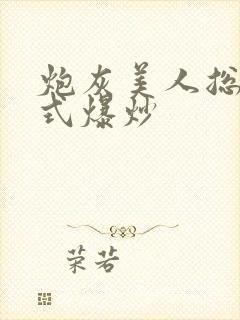 炮灰美人总
式爆炒
荣若